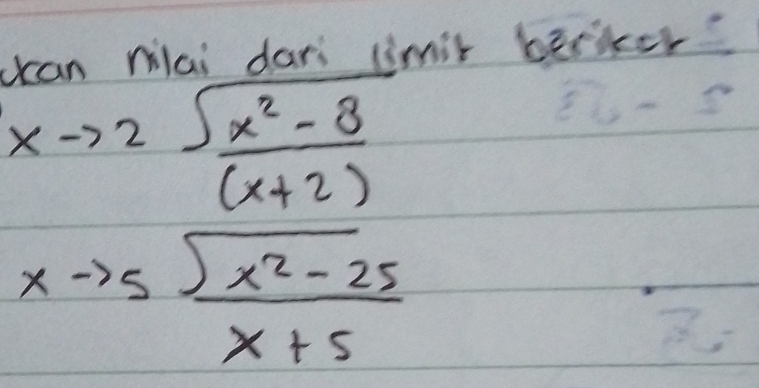 ukan nilai dari limit berikut :
x → 2 √x² - 8
(x + 2)
x → 5 √x² - 25
x + 5